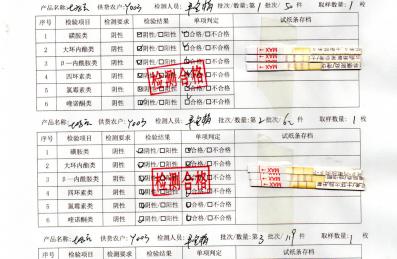 产品名称: 供货农户: Y003 检测人员: 批次/数量:第 1 批次/ 50 件 取样数量: 1 枚
序号 检验项目 检测要求 检验结果 单项判定 试纸条存档
1 磺胺类 阴性 ☑阴性/□阳性 ☑合格/□不合格
2 大环内酯类 阴性 ☑阴性/□阳性 ☑合格/□不合格
3 β-内酰胺类 阴性 ☑阴性/□阳性 ☑合格/□不合格
4 四环素类 阴性 ☑阴性/□阳性 ☑合格/□不合格
5 氯霉素类 阴性 ☑阴性/□阳性 ☑合格/□不合格
6 喹诺酮类 阴性 ☑阴性/□阳性 ☑合格/□不合格
检测合格
MAX
MAX
产品名称: 供货农户: Y003 检测人员: 批次/数量:第 2 批次/ 件 取样数量: 1 枚
序号 检验项目 检测要求 检验结果 单项判定 试纸条存档
1 磺胺类 阴性 ☑阴性/□阳性 ☑合格/□不合格
2 大环内酯类 阴性 ☑阴性/□阳性 ☑合格/□不合格
3 β-内酰胺类 阴性 ☑阴性/□阳性 ☑合格/□不合格
4 四环素类 阴性 ☑阴性/□阳性 ☑合格/□不合格
5 氯霉素类 阴性 ☑阴性/□阳性 ☑合格/□不合格
6 喹诺酮类 阴性 ☑阴性/□阳性 ☑合格/□不合格
检测合格
MAX
MAX
MAX
产品名称: 供货农户: Y003 检测人员: 批次/数量:第 3 批次/ 119 件 取样数量: 1 枚
序号 检验项目 检测要求 检验结果 单项判定 试纸条存档